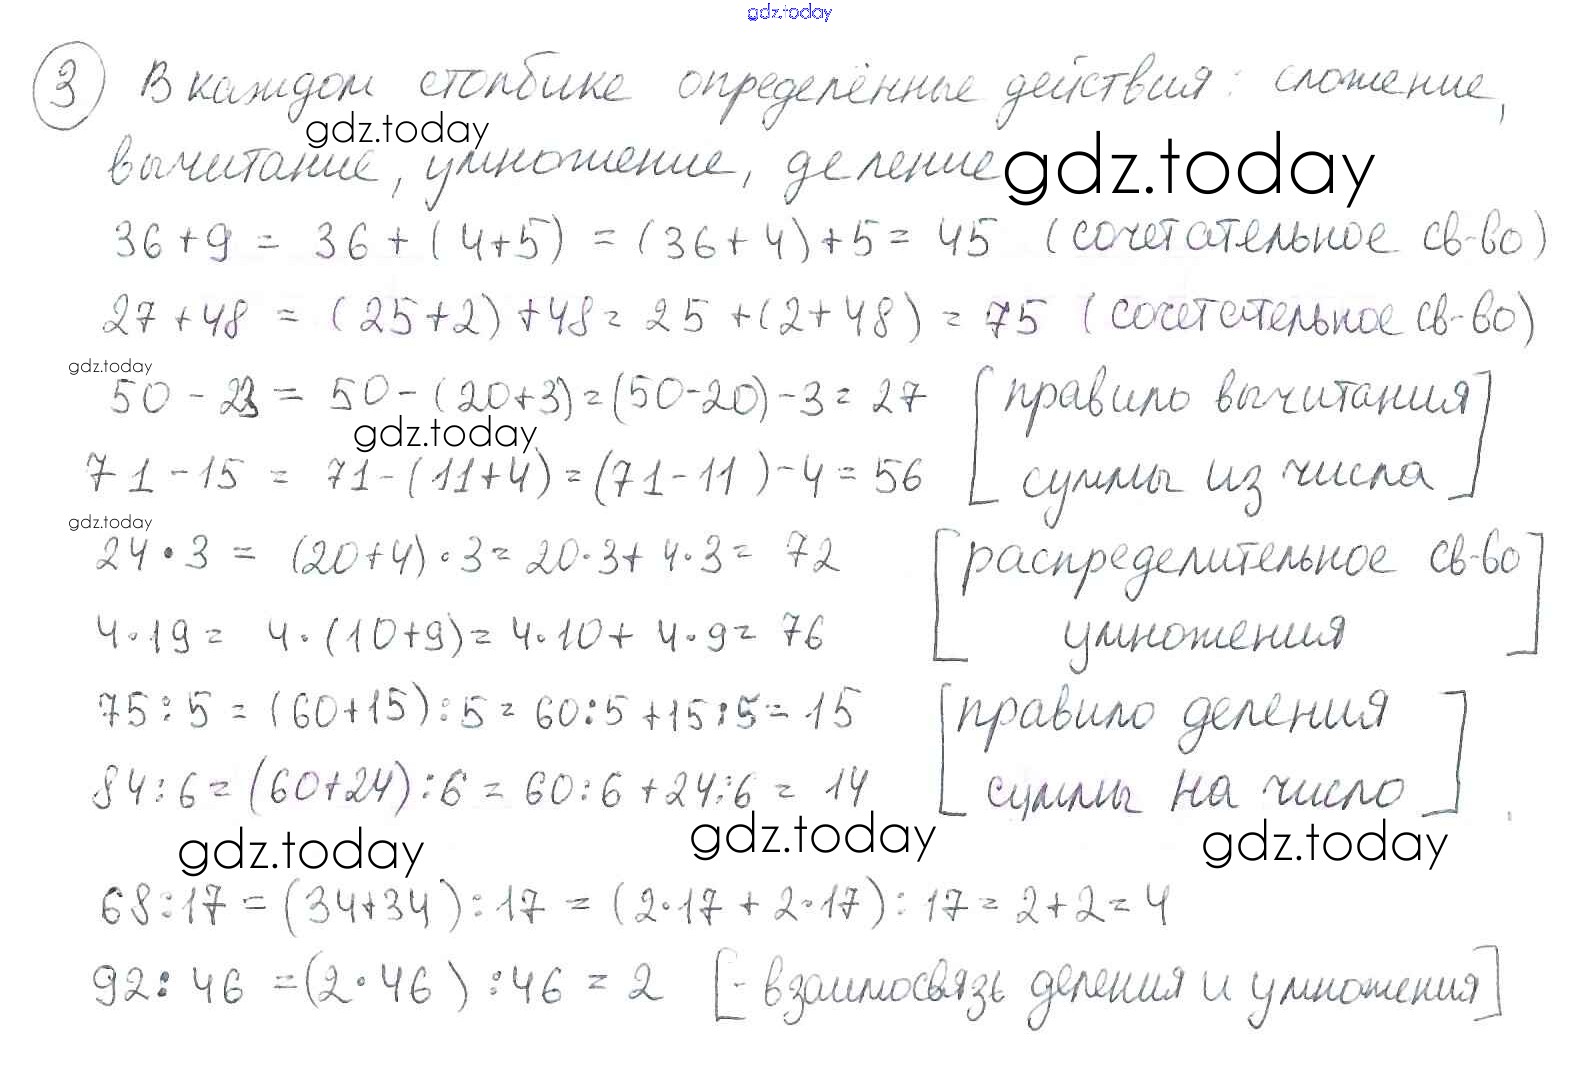 gdz.today
3 В каждом столбике определённые действия: сложение,
gdz.today
вычитание, умножение, деление
gdz.today
36+9 = 36+(4+5) = (36+4)+5= 45 (сочетательное св-во)
27+48 = (25+2)+48= 25+(2+48)= 75 (сочетательное св-во)
gdz.today
50-23= 50-(20+3)=(50-20)-3= 27 [правило вычитания
gdz.today
71-15 = 71-(11+4)=(71-11)-4= 56 суммы из числа]
gdz.today
24·3 = (20+4)·3= 20·3+4·3= 72 [распределительное св-во
4·19= 4·(10+9)= 4·10+4·9= 76 умножения]
75:5 = (60+15):5= 60:5+15:5= 15 [правило деления
84:6=(60+24):6= 60:6+24:6= 14 суммы на число]
gdz.today gdz.today gdz.today
68:17=(34+34):17=(2·17+2·17):17= 2+2= 4
92:46=(2·46):46= 2 [- взаимосвязь деления и умножения]